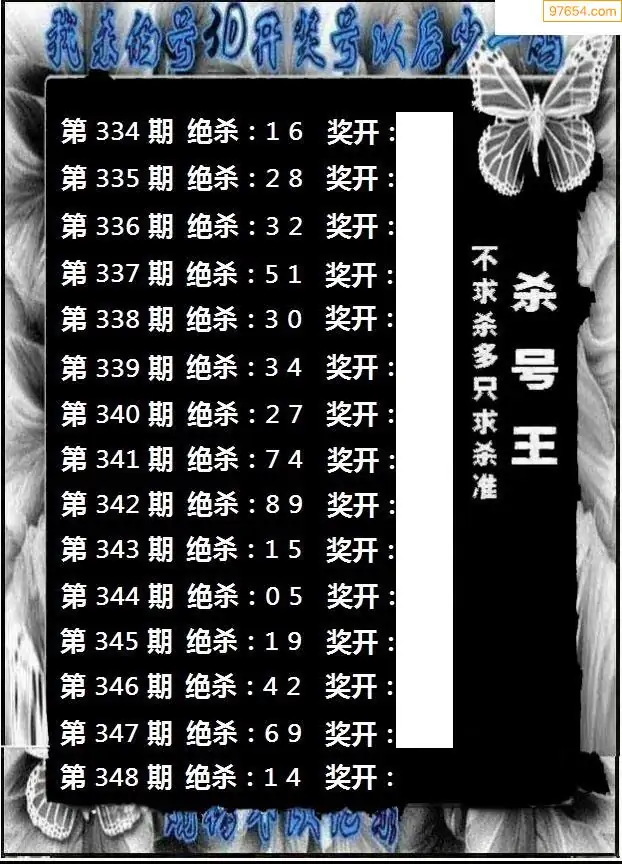 97654.com
我杀的号3D开奖号以后少一码
第 334 期 绝杀：1 6 奖开：
第 335 期 绝杀：2 8 奖开：
第 336 期 绝杀：3 2 奖开：
第 337 期 绝杀：5 1 奖开：
第 338 期 绝杀：3 0 奖开：
第 339 期 绝杀：3 4 奖开：
第 340 期 绝杀：2 7 奖开：
第 341 期 绝杀：7 4 奖开：
第 342 期 绝杀：8 9 奖开：
第 343 期 绝杀：1 5 奖开：
第 344 期 绝杀：0 5 奖开：
第 345 期 绝杀：1 9 奖开：
第 346 期 绝杀：4 2 奖开：
第 347 期 绝杀：6 9 奖开：
第 348 期 绝杀：1 4 奖开：
杀号王
不求杀多只求杀准